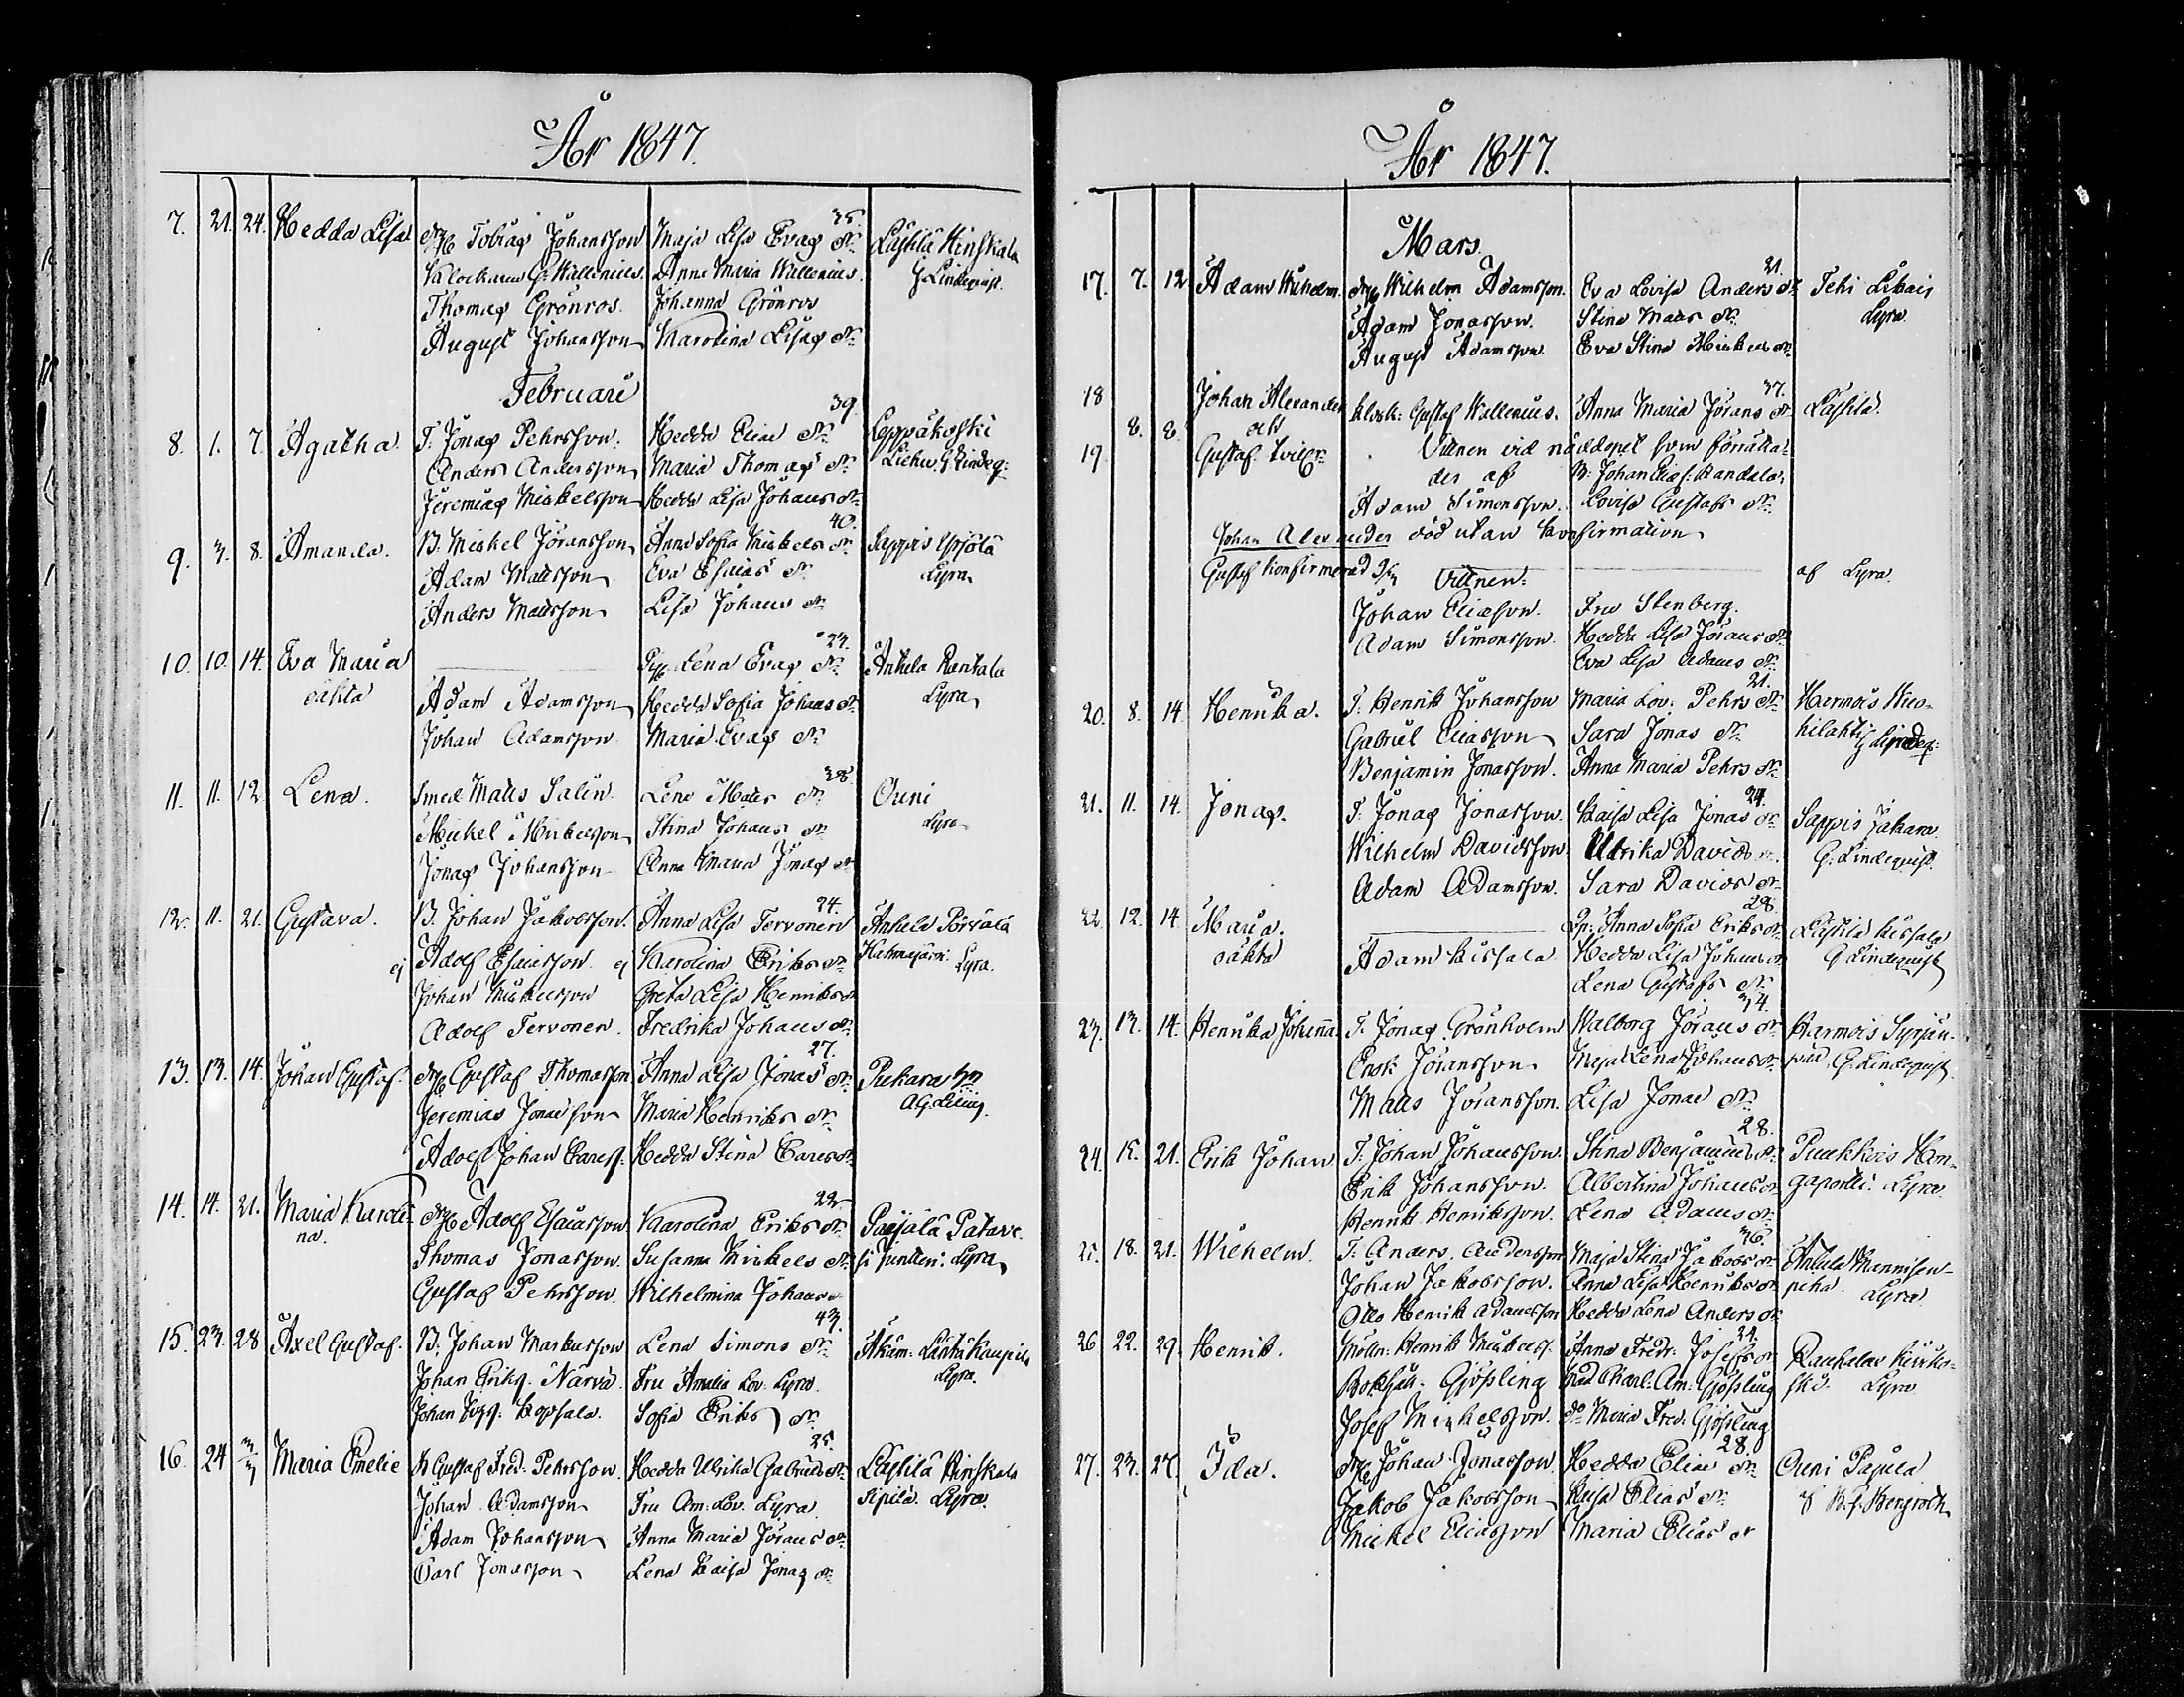 År 1847.
35.
7. 21. 24. Hedda Lisa Tobias Johansson Maja Lisa Evas dr Lästilä Hinskala
Klockaren G. Wallenius. Anna Maria Wallenius. G Lindequist.
Thomas Grönros. Johanna Grönros
August Johansson Karolina Lisas dr
Februari
39.
8. 1. 7. Agatha. T. Jonas Pehrsson. Hedda Elias dr Leppäkoski
Anders Andersson Maria Thomas dr G. Lindeq:
Jeremias Mickelsson Hedda Lisa Johans dr
40.
9. 3. 8. Amanda. B. Mickel Jöransson Anna Sofia Mickels dr Sappis Ypjölä
Adam Mattsson Eva Esaias dr Lyra
Anders Mattsson Lisa Johans dr
23.
10. 10. 14. Eva Maria Lena Evas dr Ankela Rantala
oäkta Adam Adamsson Hedda Sofia Johans dr Lyra
Johan Adamsson Maria Evas dr
38.
11. 11. 12. Lena. Smed Matts Salin Lena Matts dr Orini
Mickel Mickelsson Stina Johans dr Lyra
Jonas Johansson Anna Maria Jonas dr
24.
12. 11. 21. Gustava. B. Johan Jakobsson. Anna Lisa Tervonen Ankela Pörsälä
ej Adolf Esaiasson. ej Karolina Eriks dr Hatmajärvi. Lyra.
Johan Mickelsson Greta Lisa Henriks dr
Adolf Tervonen. Fredrika Johans dr
27.
13. 13. 14. Johan Gustaf. Gustaf Thomasson Anna Lisa Jonas dr Pukara by
Jeremias Jonasson Maria Henriks dr A G. Lilius.
Adolf Johan Carlss. Hedda Stina Carls dr
22.
14. 14. 21. Maria Karoli- Adolf Esaiasson Karolina Eriks dr Pasjälä Patava
na. Thomas Jonasson. Susanna Mickels dr si Juntteri. Lyra
Gustaf Pehrsson. Wilhelmina Johans dr
43.
15. 23. 28 Axel Gustaf. B. Johan Markusson Lena Simons dr Åkäm. Lästi Kaupila
Johan Eriks. Närvä. Fru Amalia Lov. Lyra. Lyra.
Johan Kopsala. Sofia Eriks dr
25.
16. 24 3/3 Maria Emelie Gustaf Fred. Pehrsson. Hedda Ulrika Gabriels dr Lästilä Hinskala
Johan Adamsson Fru Am. Lov. Lyra Sipilä. Lyra.
Adam Johansson Anna Maria Jörans dr
Carl Jonasson Lena Kaisa Jonas dr
År 1847.
Mars.
21.
17. 7. 12 Adam Wilhelm. Wilhelm Adamsson. Eva Lovisa Anders dr Tehi Likais
Adam Jonasson. Stina Matts dr Lyra
August Adamsson. Eva Stina Mickels dr
37.
18 Johan Alexander Klock: Gustaf Wallenius. Anna Maria Jörans dr Lästilä.
8. 8. och
19. Gustaf tvill. Vittnen vid nöddopet som förrätta-
des af
Adam Simonsson. Lovisa Gustafs dr
Johan Alexander död utan konfirmation
Gustaf konfirmerad Vittnen: af Lyra.
Johan Eliasson. Fru Stenberg.
Adam Simonsson. Hedda Lisa Jörans dr
Eva Lisa Adams dr
21.
20. 8. 14. Henrika. T. Henrik Johansson Maria Lov: Pehrs dr Harmois Wuo-
Gabriel Eliasson Sara Jonas dr hilahti G Lindeq:
Benjamin Jonasson. Anna Maria Pehrs dr
24.
21. 11. 14. Jonas. T. Jonas Jonasson. Kaisa Lisa Jonas dr Sappis Jakara
Wilhelm Davidsson Ulrika Davids dr G. Lindequist.
Adam Adamsson. Sara Davids dr
28.
22. 12. 14 Maria. Anna Sofia Eriks dr Lästilä Kissala
oäkta Adam Kissala Hedda Lisa Johans dr G Lindequist
Lena Gustafs dr
34.
23. 13. 14. Henrika Johanna T. Jonas Grönholm Walborg Jörans dr Harmois Syrjän-
Enok Jöransson Maja Lena Johans dr pää G. Lindequist.
Matts Jöransson. Lisa Jonae dr
28.
24. 15. 21. Erik Johan T. Johan Johansson. Stina Benjamins dr Puukkois Hon-
Erik Johansson. Albertina Johans dr gaportti. Lyra.
Henrik Henriksson. Lena Adams dr
36.
25. 18. 21. Wilhelm. T. Anders Andersson Maja Stina Jakobs dr Ankela Mannisen-
Johan Jakobsson. Anna Lisa Henriks dr peha. Lyra
Otto Henrik Adamsson Hedda Lena Anders dr
24.
26 22. 29. Henrik. Mölln. Henrik Mickelss. Anna Fredr. Josefs dr Raukelan Kuusko-
Bokhåll. Gjösling Mad. Charl. Am. Gjösling ski. Lyra.
Josef Mickelsson. do Maria Fred. Gjösling
28.
27. 23. 27. Ida. Johan Jonasson. Hedda Elias dr Orini Pajula
Jakob Jakobsson Kaisa Elias dr af K. J. Bergroth
Mickel Eliasson Maria Elias dr